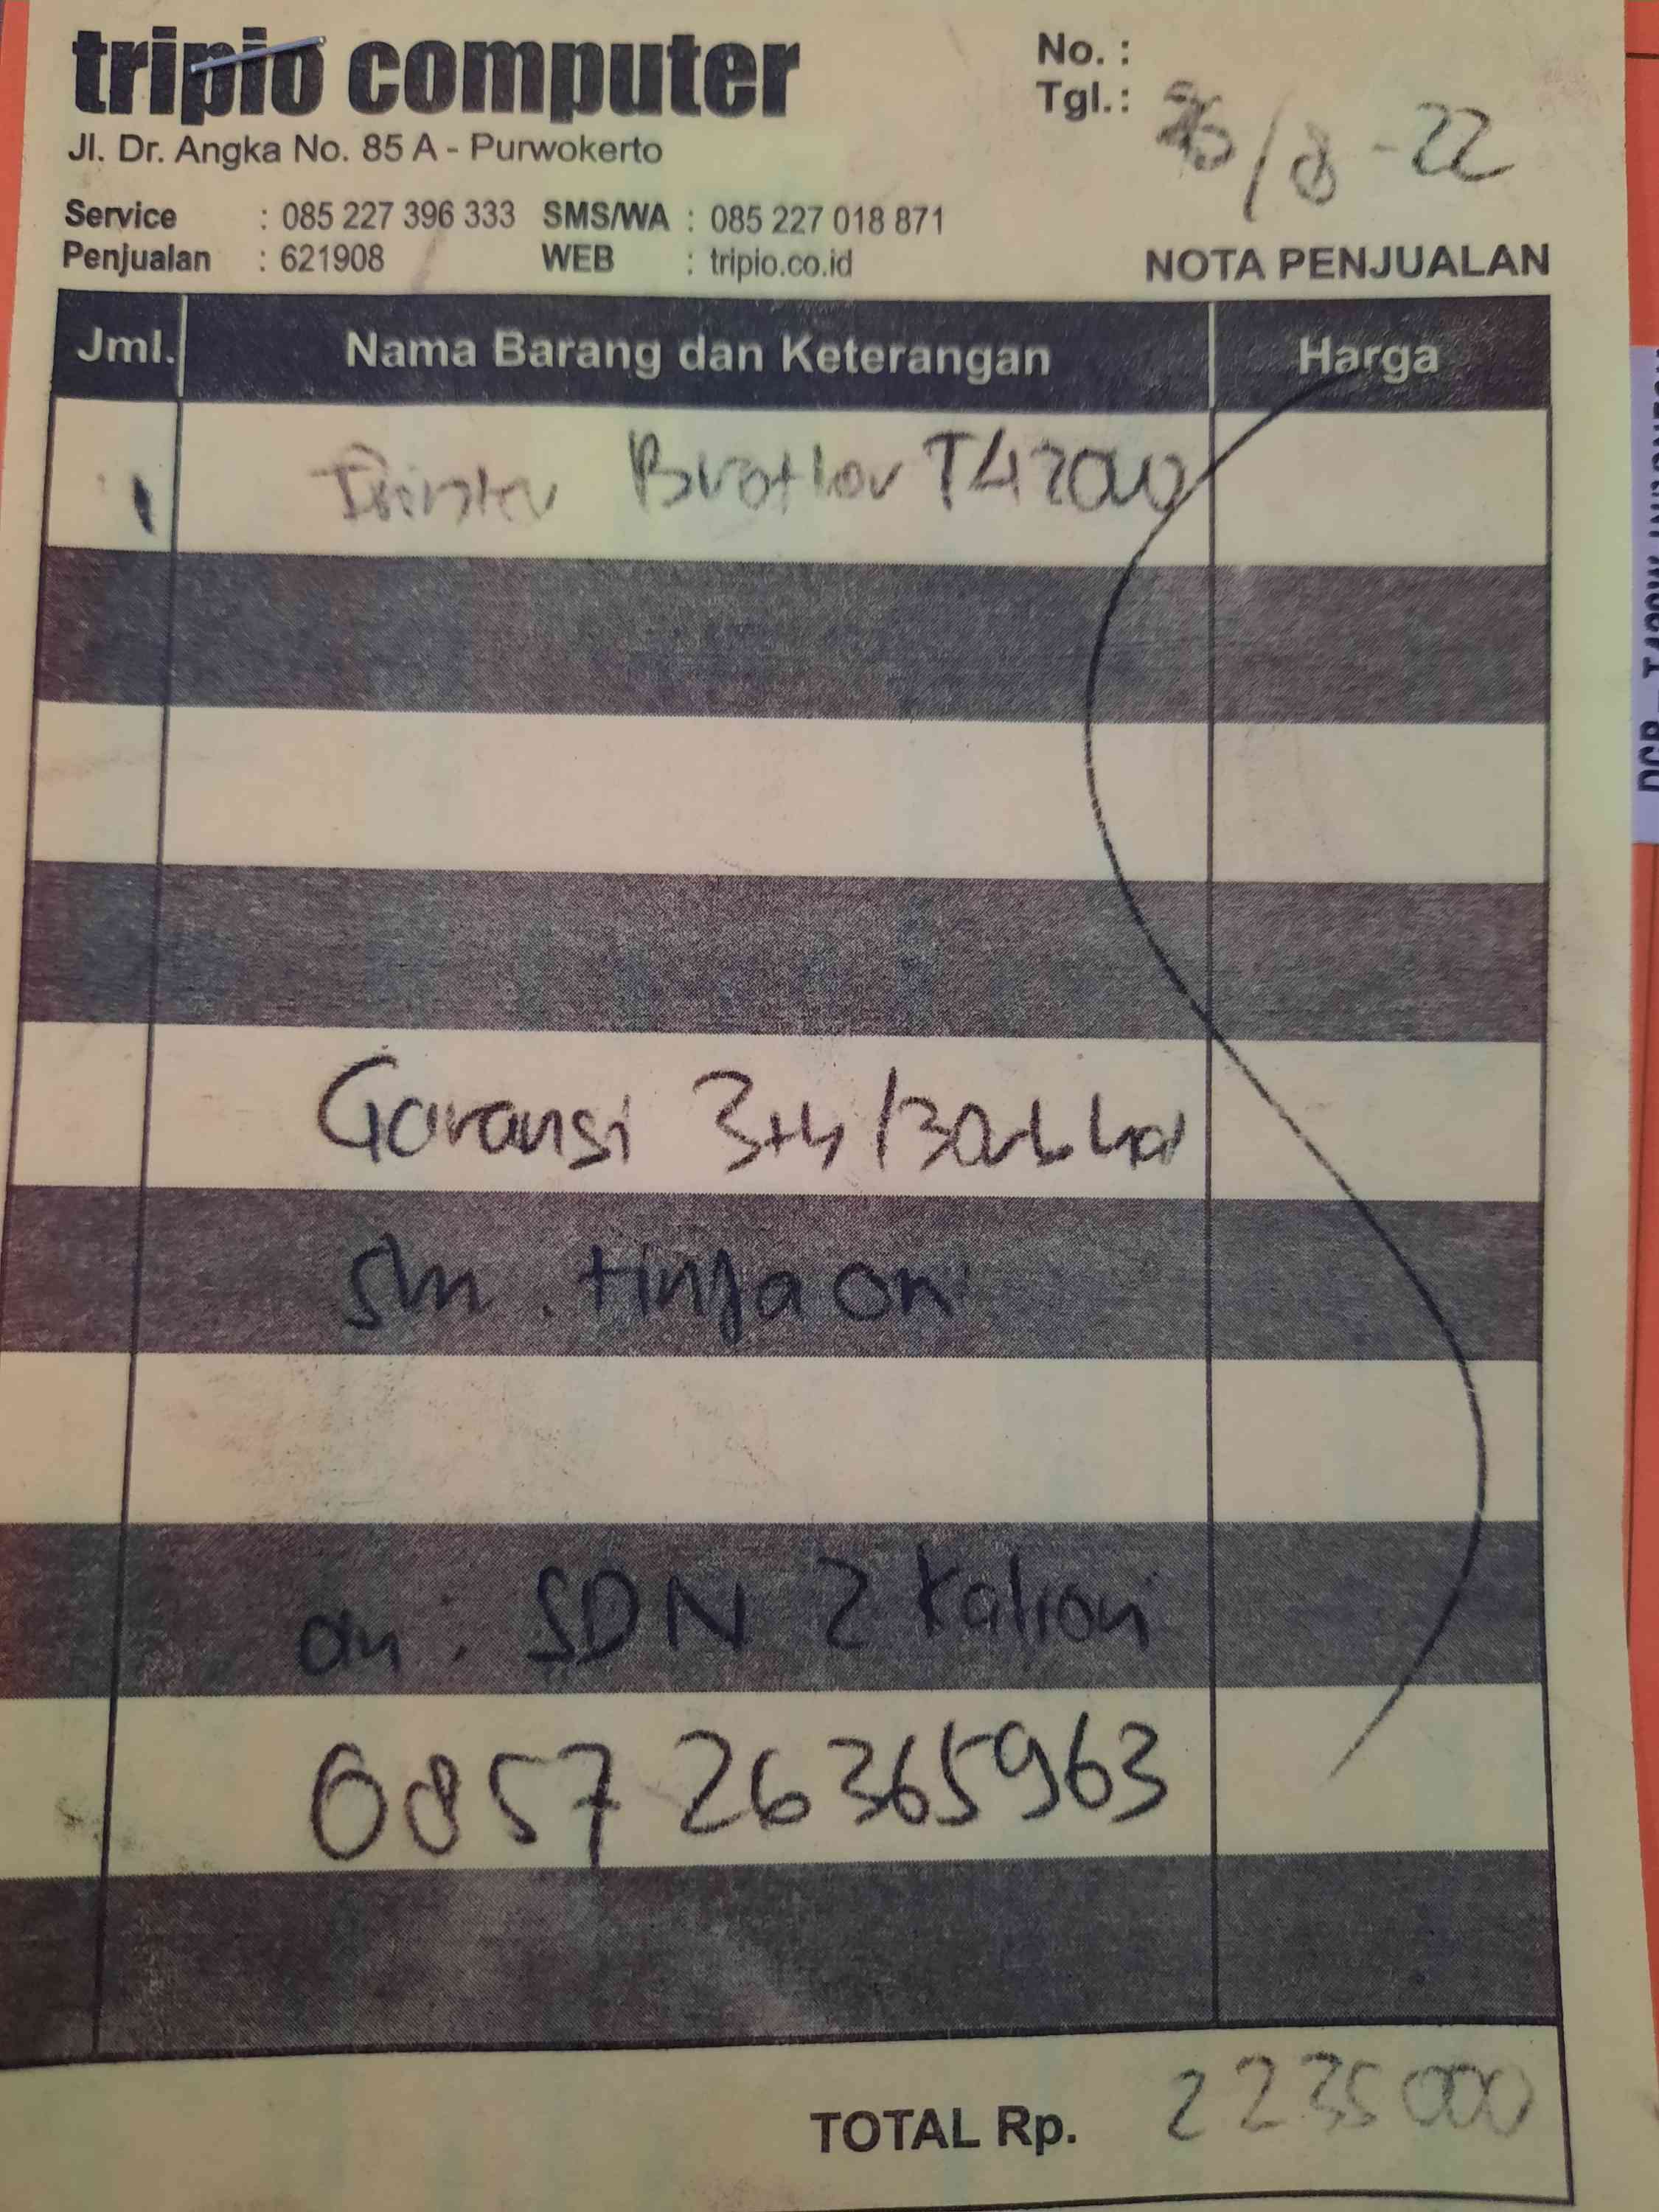 tripio computer
Jl. Dr. Angka No. 85 A - Purwokerto
Service : 085 227 396 333 SMS/WA : 085 227 018 871
Penjualan : 621908 WEB : tripio.co.id
No. :
Tgl. : /8 - 22
NOTA PENJUALAN
Jml. Nama Barang dan Keterangan Harga
1 Printer Brother T420W
Garansi 3th /
an. SDN 2 Kaliori
0857 26365963
TOTAL Rp. 2235000